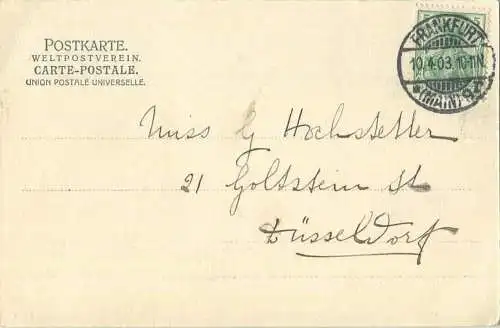 POSTKARTE.
WELTPOSTVEREIN.
CARTE-POSTALE.
UNION POSTALE UNIVERSELLE.
FRANKFURT
10.4.03. 10-11N.
(MAIN)
Miss G Hochstetter
21 Goltstein St
Düsseldorf